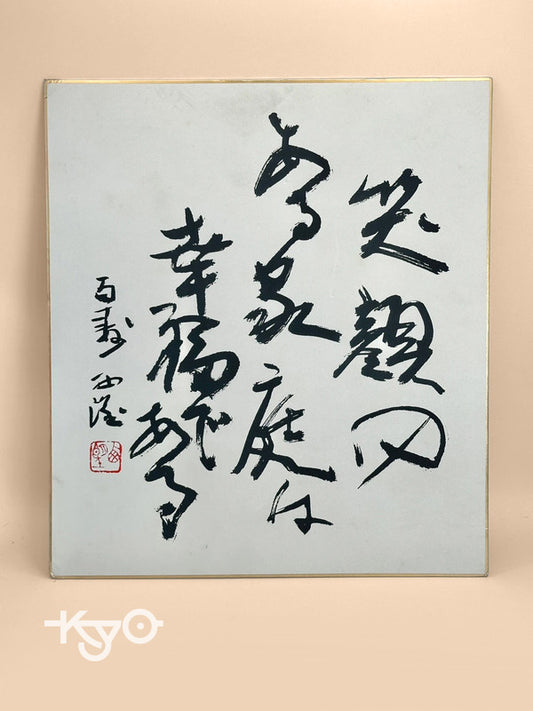 笑顔の
ある家庭は
幸福である
百寿
KyO